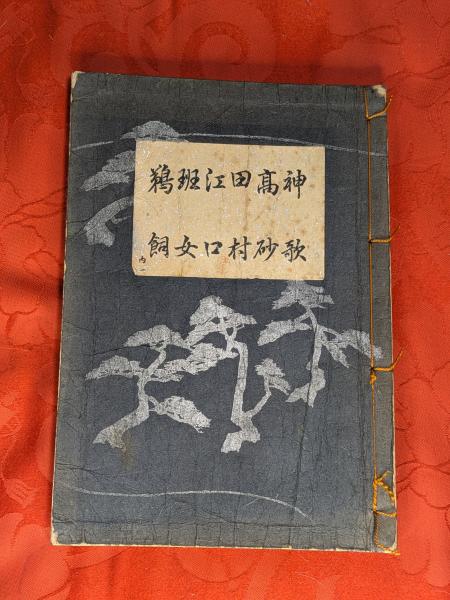 神歌
髙砂
田村
江口
班女
鵜飼
内一